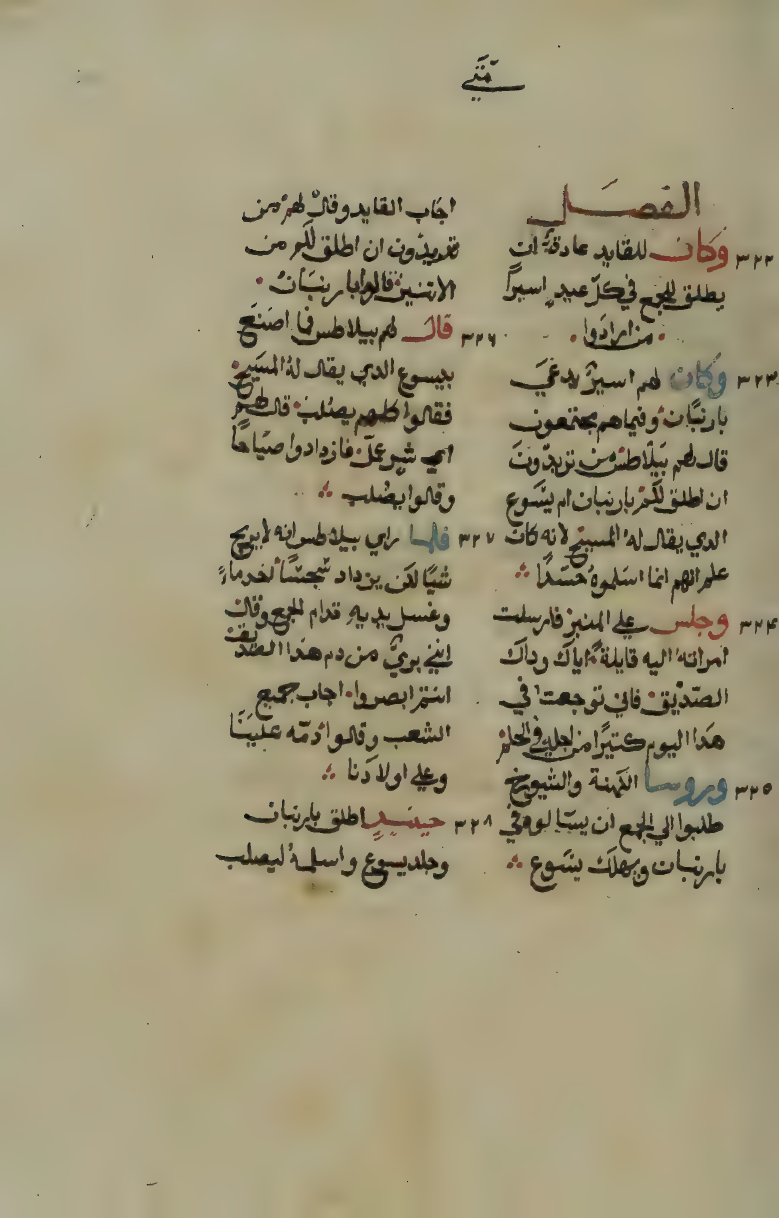 متي
الفصل
٣٢٢ وكان للقايد عادة ان
يطلق للجمع في كل عيد اسيرًا
من ارادوا
٣٢٣ وكان لهم اسير يدعي
بارنبان وفيماهم مجتمعون
قال لهم بيلاطس من تريدون
ان اطلق لكم بارنبان ام يسوع
الدي يقال له المسيح لانه كان
علم انهم انما اسلموه حسدًا
٣٢٤ وجلس علي المنبر فارسلت
امراته اليه قايلة اياك وداك
الصديق فاني توجعت في
هدا اليوم كتيرًا من اجله في الحلم
٣٢٥ وروسا الكهنة والشيوخ
طلبوا الي الجمع ان يسالوه في
بارنبان ويهلك يسوع
اجاب القايد وقال لهم من
تريدون ان اطلق لكم من
الاتنين قالوا بارنبان
٣٢٦ قال لهم بيلاطس فما اصنع
بيسوع الدي يقال له المسيح
فقالوا كلهم يصلب قال لهم
اي شر عمل فازدادوا صياحًا
وقالوا يصلب
٣٢٧ فلما راي بيلاطس انه لا يربح
شيًا لكن يزداد شجسًا اخد ماءً
وغسل يديه قدام الجمع وقال
انني بري من دم هدا الصديق
انتم ابصروا اجاب جميع
الشعب وقالوا دمه علينا
وعلي اولادنا
٣٢٨ حينيد اطلق بارنبان
وجلد يسوع واسلمه ليصلب